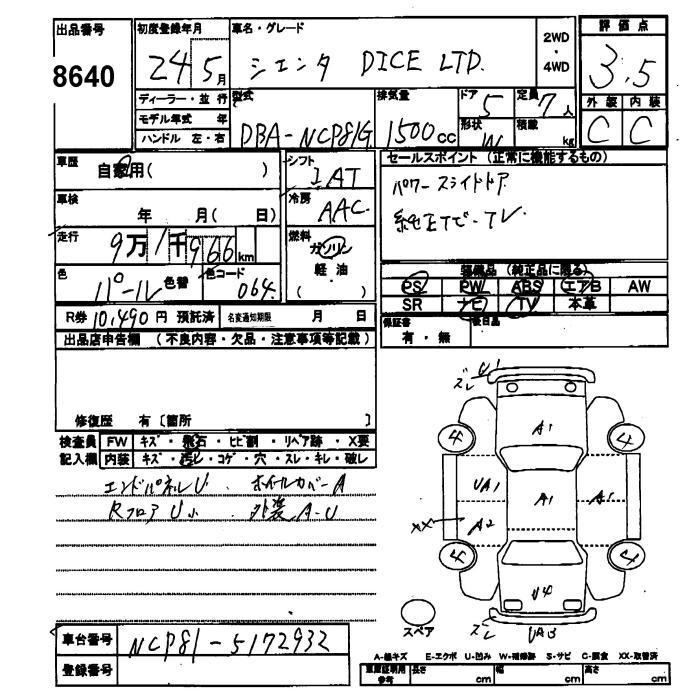 出品番号 初度登録年月 車名・グレード 2WD ・ 4WD 評価点
8640 24 5月 シエンタ DICE LTD. 3.5
ディーラー・並行 型式 排気量 ドア 5 定員 7人 外装 内装
モデル年式 年 DBA-NCP81G 1500cc 形状 W 積載 kg C C
ハンドル 左・右
車歴 自家用( ) シフト IAT セールスポイント (正常に機能するもの)
車検 年 月( 日) 冷房 AAC パワースライドドア
走行 9万1千966km 燃料 ガソリン 純正ナビ-TV
色 パール 色替 色コード 064 軽・油 ( )
装備品 (純正品に限る)
PS PW ABS エアB AW
SR ナビ TV 本革
R券 10,490円 預託済 名変通知期限 月 日
保証書 有・無 後日品
出品店申告欄 (不良内容・欠品・注意事項等記載)
修復歴 有〔箇所 〕
検査員 FW キズ・飛石・ヒビ割・リペア跡・X要
記入欄 内装 キズ・汚レ・コゲ・穴・スレ・キレ・破レ
エンドパネルU ホイールカバーA
RフロアU小 外装A-U
ズレ U1
A1
4 4
UA1 A1 A1
XX A2
4 4
U4
ズレ UA3
スペア
車台番号 NCP81-5172932
登録番号
A-線キズ E-エクボ U-凹み W-補修跡 S-サビ C-腐食 XX-取替済
車庫証明用参考 長さ cm 幅 cm 高さ cm